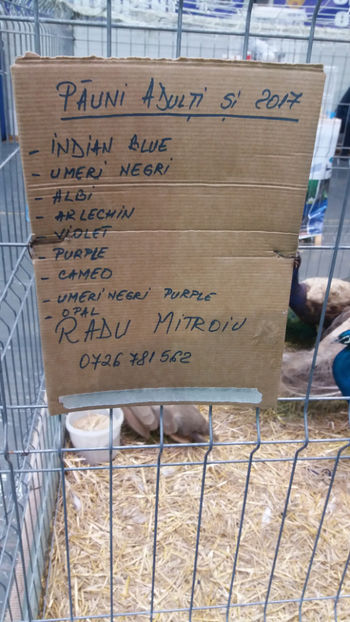 PĂUNI ADULȚI ȘI 2017
- INDIAN BLUE
- UMERI NEGRI
- ALBI
- ARLECHIN
- VIOLET
- PURPLE
- CAMEO
- UMERI NEGRI PURPLE
- OPAL
RADU MITROIU
0726 781 562